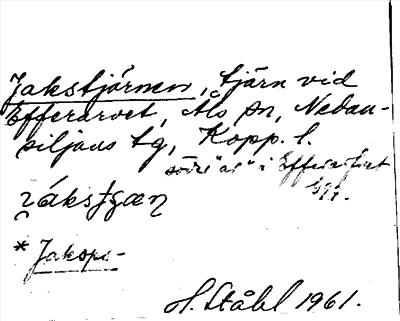 Jakstjärnen, tjärn vid
Efferarvet, Åls sn, Nedan-
siljans tg, Kopp. l.
södr "a" i Efferarvet
*Jakops-
H. Ståhl 1961.